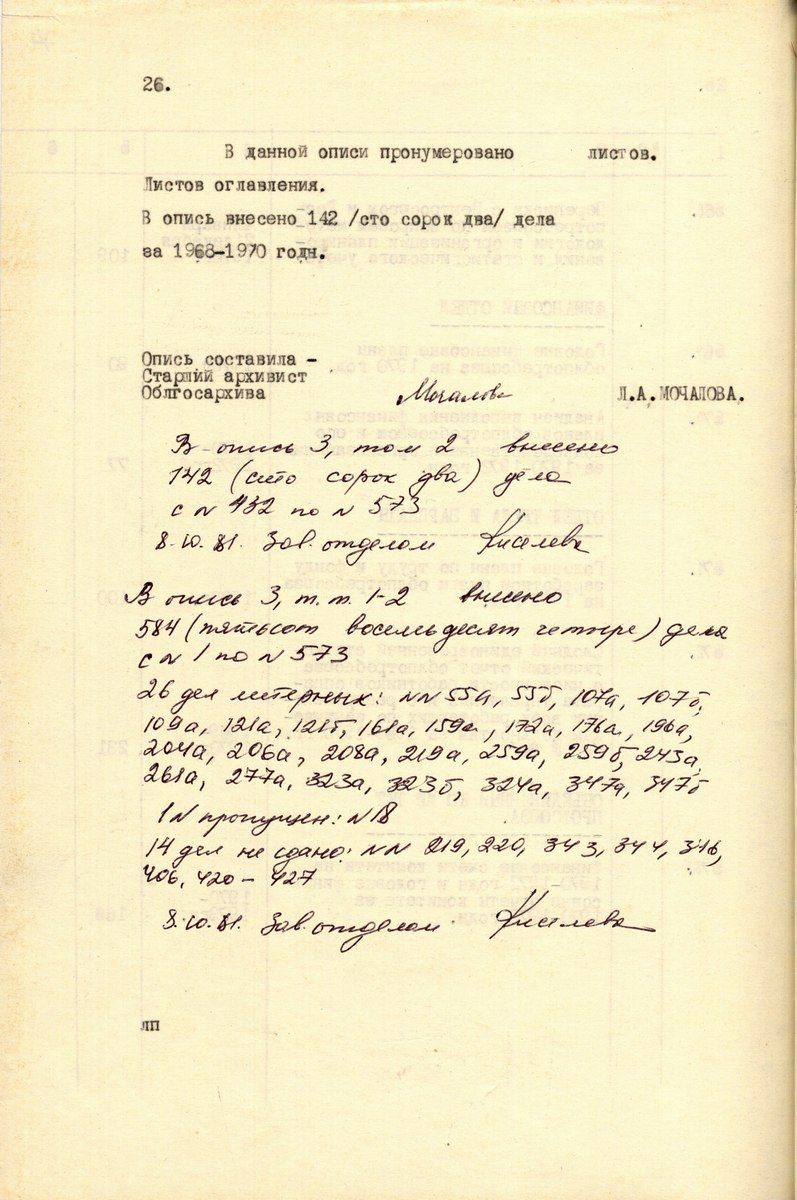 26.
В данной описи пронумеровано листов.
Листов оглавления.
В опись внесено 142 /сто сорок два/ дела
за 1968-1970 годы.
Опись составила -
Старший архивист
Облгосархива Мочалова Л.А.МОЧАЛОВА.
В опись 3, том 2 внесено
142 (сто сорок два) дела
с N 432 по N 573
8.10.81. Зав. отделом Киселева
В опись 3, т.т. 1-2 внесено
584 (пятьсот восемьдесят четыре) дела
с N 1 по N 573
26 дел литерных: NN 55а, 55б, 107а, 107б,
109а, 121а, 121б, 161а, 159а, 172а, 176а, 196а,
204а, 206а, 208а, 219а, 259а, 259б, 243а,
261а, 277а, 323а, 323б, 324а, 347а, 347б
1 N пропущен: N 18
14 дел не сдано: NN 219, 220, 343, 344,
406, 420-427
8.10.81. Зав. отделом Киселева
лп